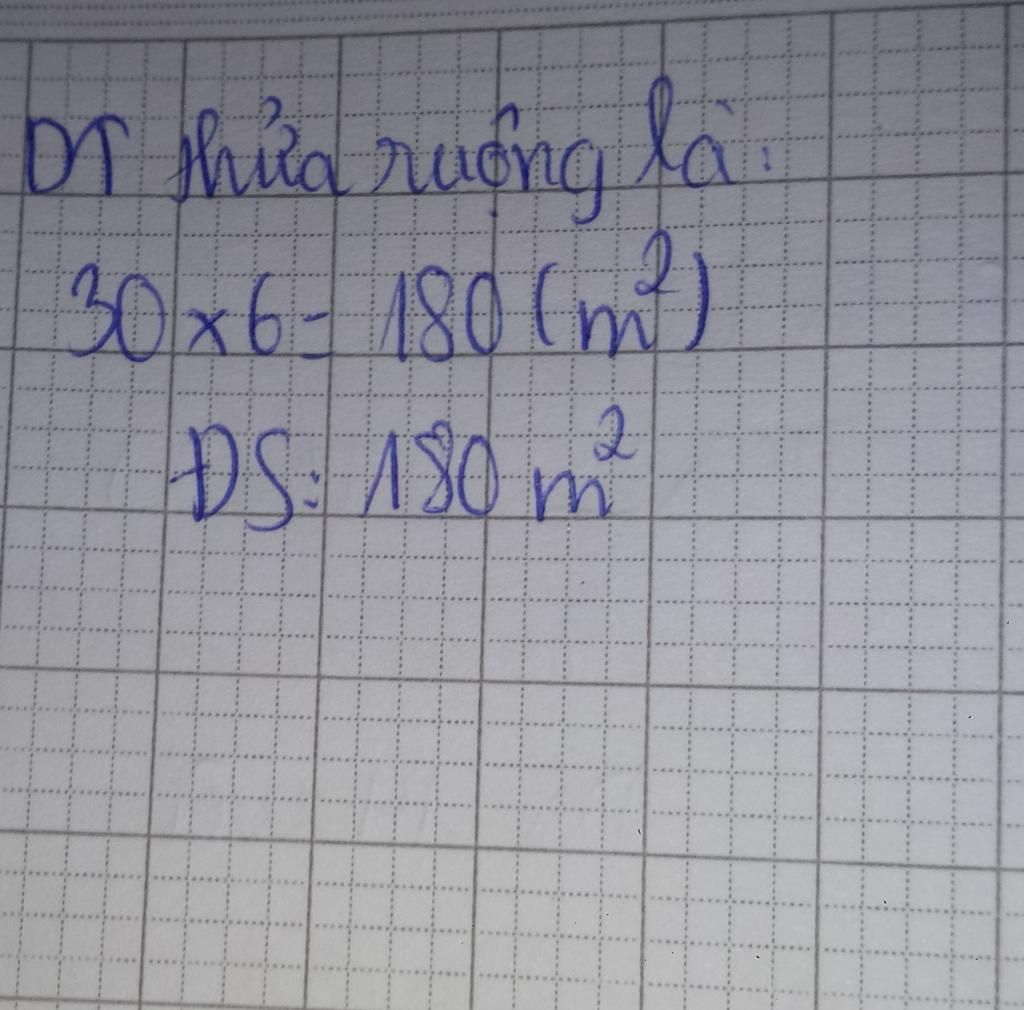 DT thửa ruộng là:
30 × 6 = 180 (m²)
ĐS: 180 m²